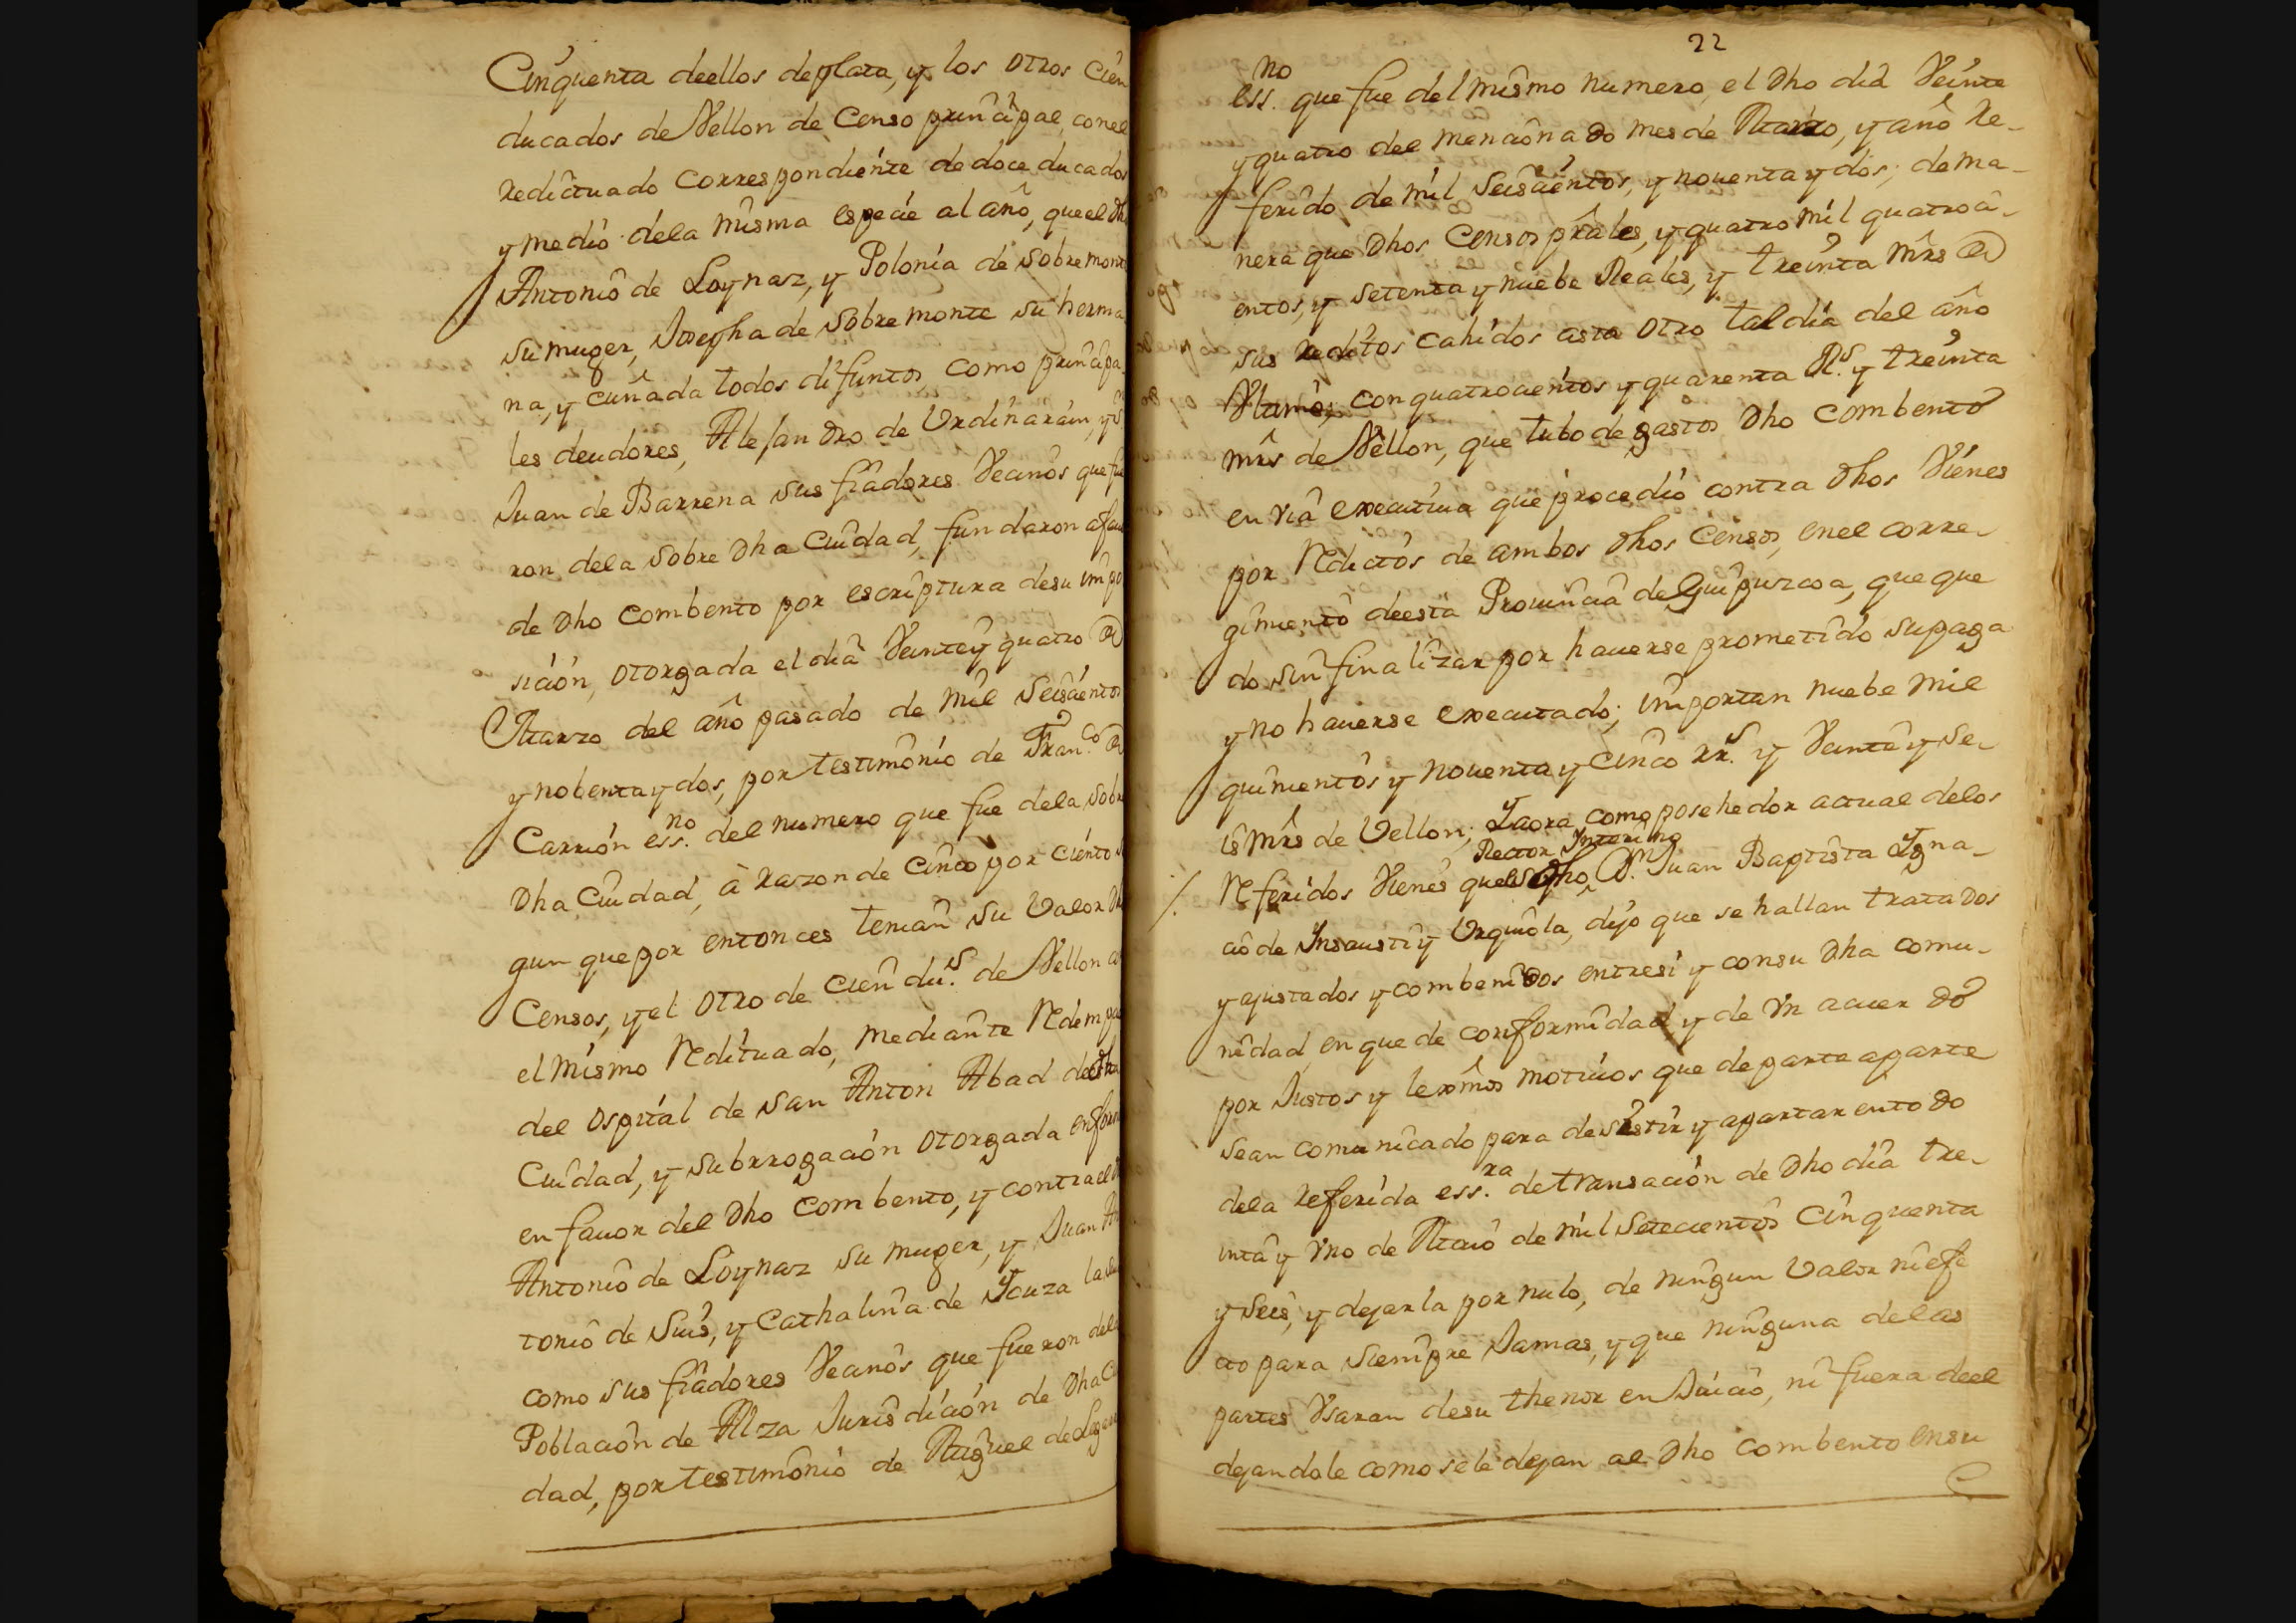 Cinquenta deellos deplata, y los otros Cien
ducados de Vellon de Censo principal, conel
redictuado correspondiente de doce ducados
y medio dela misma especie al año, queel Dh
Antonio de Loynaz, y Polonia de Sobremonte
su muger, Josepha de Sobremonte su herma
na, y cuñada todos difuntos, como principa
les deudores, Alejandro de Urdinarain, y
Juan de Barrena sus fiadores Vecinos que fue
ron dela sobre Dha Ciudad, fundaron afau
de Dho combento por escriptura desu impo
sición, otorgada el dia Veintey quatro de
Marzo del año pasado de mil Seiscientos
y nobenta y dos, por testimonio de Fran.co de
Carrión ess.no del numero que fue dela sobre
Dha Ciudad, à razon de Cinco por ciento
gun que por entonces tenian su Valor Dh
Censos, y el otro de Cien du.s de Vellon co
el mismo Redituado, mediante Redempc
del Ospital de San Anton Abad de Dha
Ciudad, y subrrogación otorgada enforma
en favor del Dho Combento, y contra el
Antonio de Loynaz su muger, y Juan An
tonio de Suis, y Cathalina de Youza la
como sus fiadores Vecinos que fueron dela
Población de Alza Jurisdición de Dha Ciu
dad, por testimonio de Miguel de
22
ess.no que fue del mismo numero, el Dho dia Veinte
y quatro del mencionado mes de Marzo, y año Re-
ferido de mil Seiscientos, y nouenta y dos; dema-
nera que Dhos Censos prâles, y quatro mil quatroci-
entos, y setenta y nuebe Reales, y treinta mrs de
sus reditos cahidos asta otro tal dia del año
Vltimo; con quatrocientos y quarenta R.s y treinta
mrs de Vellon, que tubo de gastos Dho combento
en via executiua que procedió contra Dhos Vienes
por Redictos de ambos Dhos Censos, enel corre-
gimiento deesta Prouincia de Guipuzcoa, que que
do sin finalizar por hauerse prometido su paga
y no hauerse executado; importan nuebe mil
quinientos y nouenta y Cinco rr.s y Veinte y se-
is mrs de Vellon; Yaora como posehedor actual delos
Rector Interino
/. Referidos Vienes quel Dho D.n Juan Baptista Igna-
cio de Insausti y Urquiola, dijo que se hallan tratados
y ajustados y combenidos entresi y consu Dha comu-
nidad en que de conformidad y de Vn acuerdo
por Justos y lexmos motiuos que de parte aparte
sean comunicado para desistir y apartar entodo
dela referida ess.ra detransación de Dho dia tre-
inta y Vno de Maio de mil Setecientos Cinquenta
y Seis, y dejarla por nulo, de ningun Valor ni efe
cto para Siempre Jamas, y que ninguna delas
partes Vsaran desu thenor en Juicio, ni fuera deel
dejandole como sele dejan al Dho Combento ensu